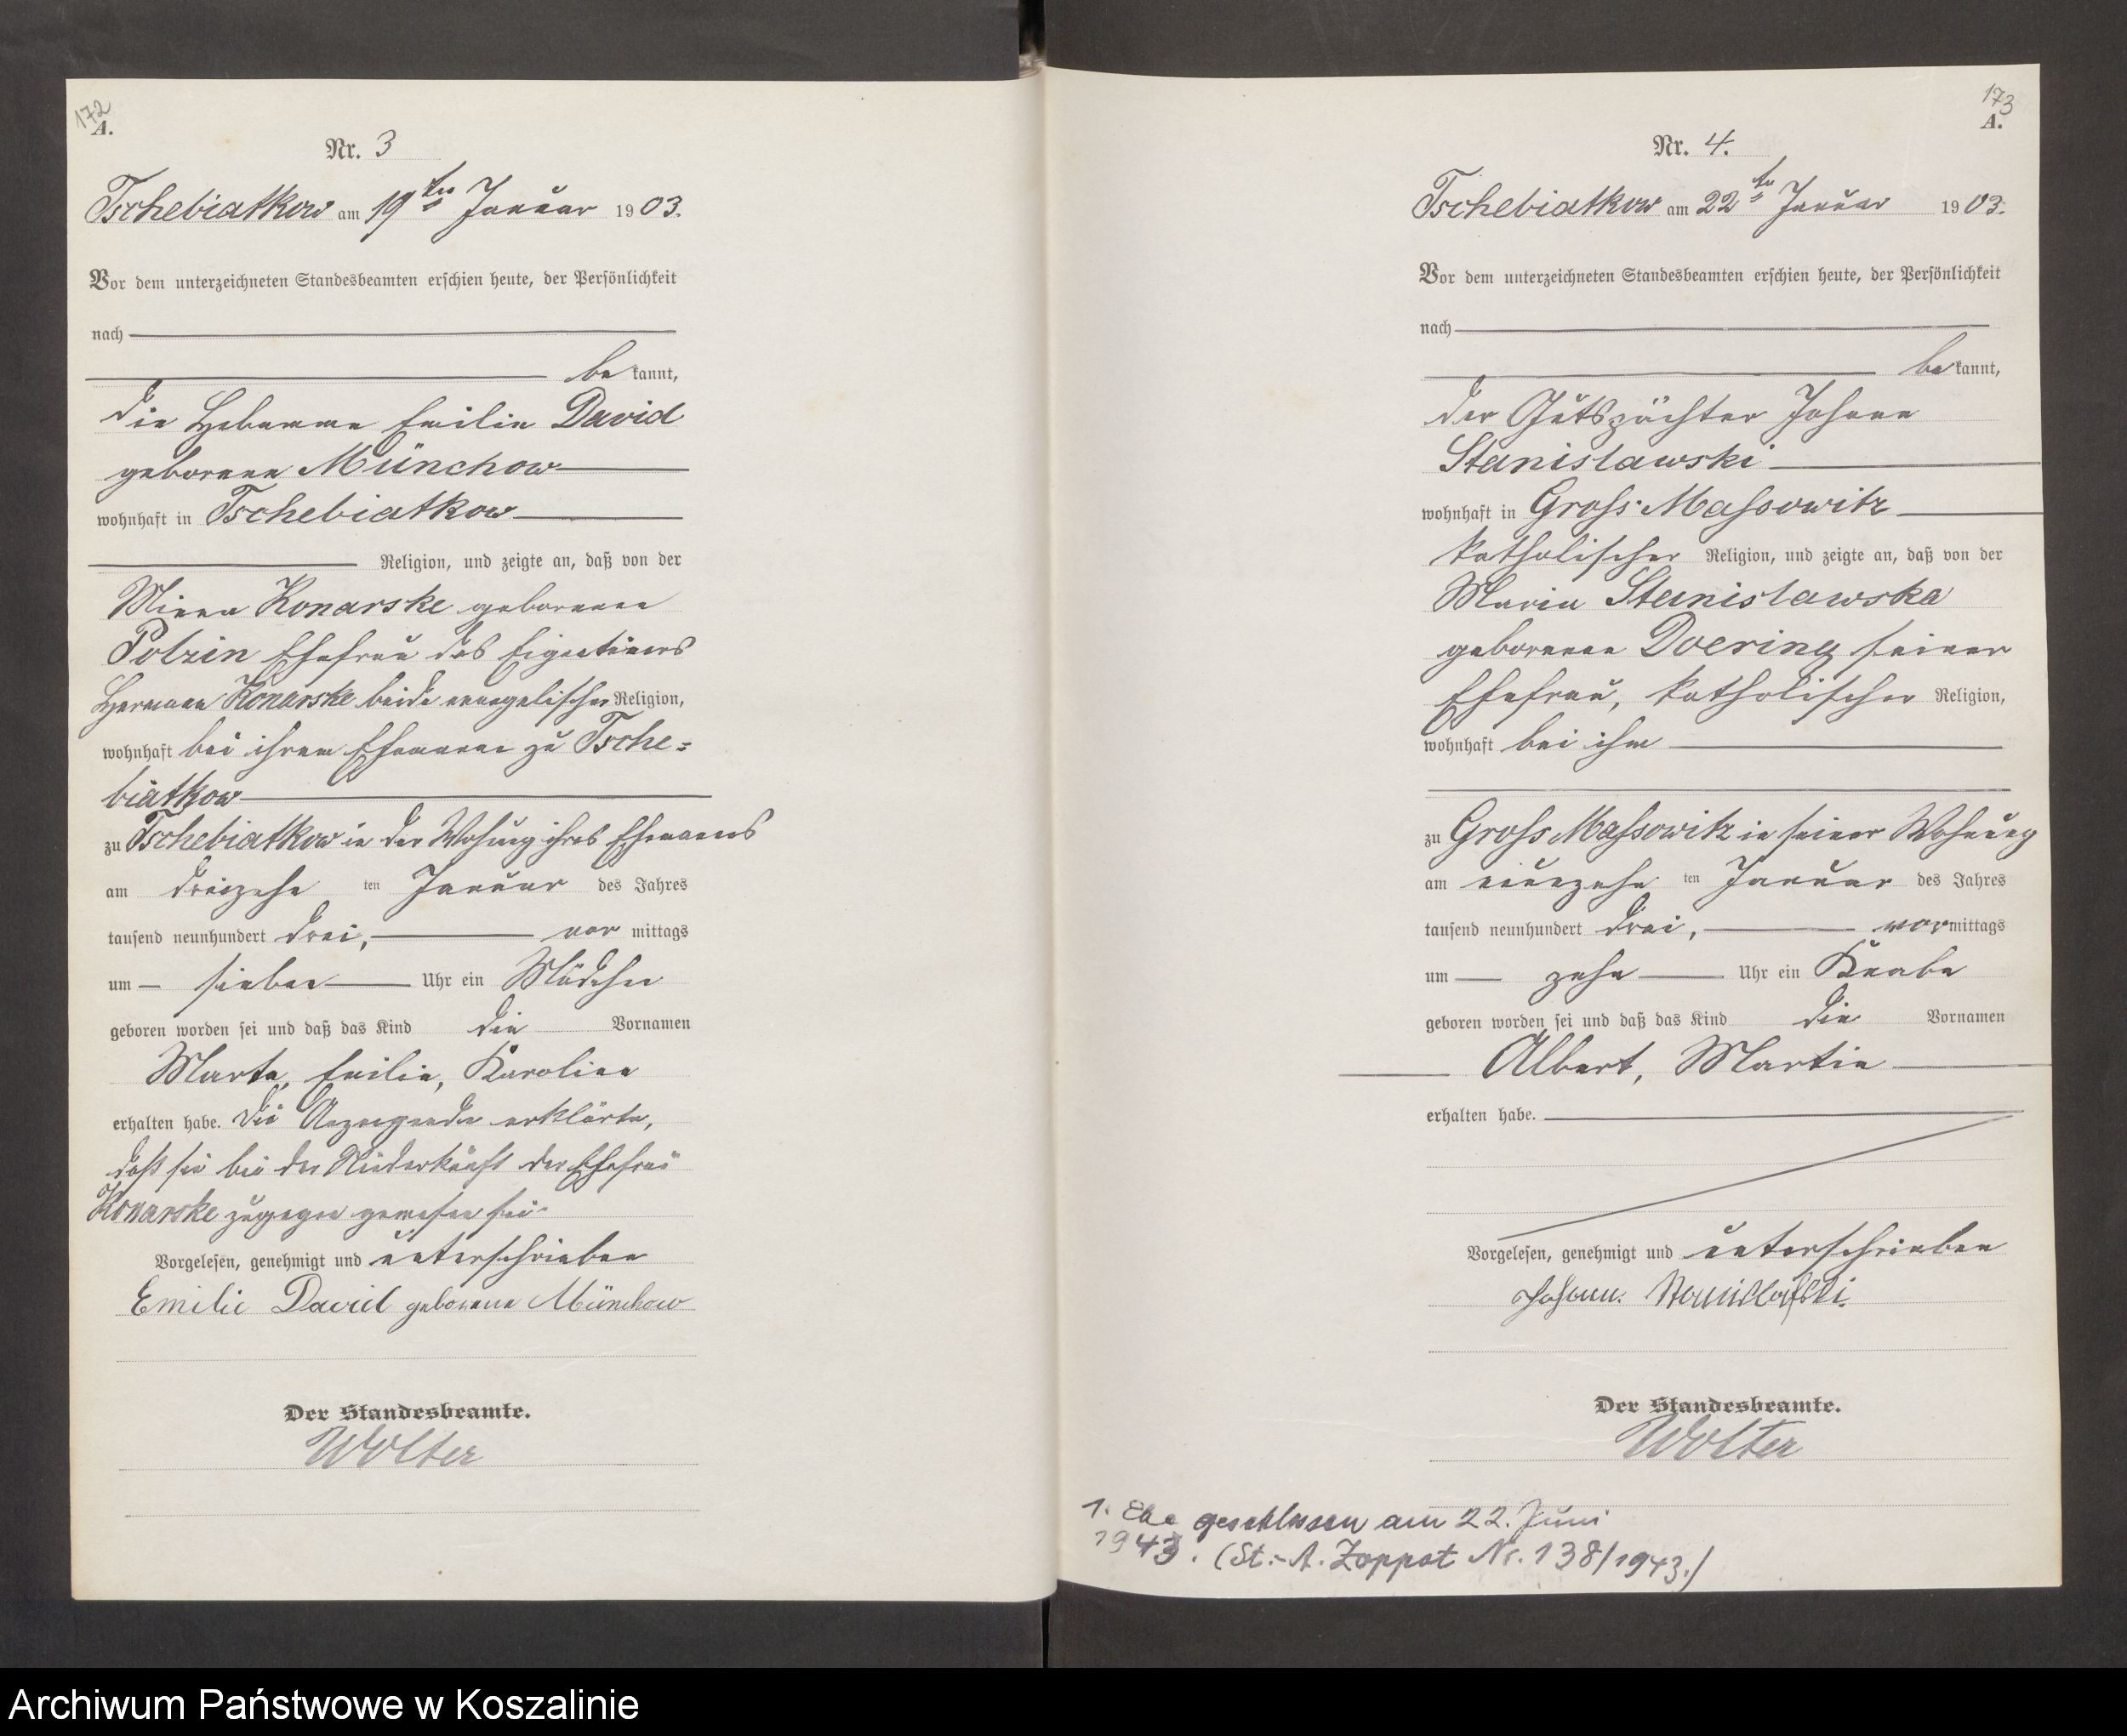 172
A.
Nr. 3
Tschebiatkow am 19ten Januar 1903.
Vor dem unterzeichneten Standesbeamten erschien heute, der Persönlichkeit
nach
be kannt,
die Hebamme Emilie David
geborene Münchow
wohnhaft in Tschebiatkow
Religion, und zeigte an, daß von der
Minna Konarske geborenen
Polzin Ehefrau des Eigentümers
Hermann Konarske beide evangelischer Religion,
wohnhaft bei ihrem Ehemanne zu Tsche=
biatkow
zu Tschebiatkow in der Wohnung ihres Ehemanns
am dreizehn ten Januar des Jahres
tausend neunhundert drei, vor mittags
um sieben Uhr ein Mädchen
geboren worden sei und daß das Kind die Vornamen
Marta, Emilie, Karoline
erhalten habe. Die Anzeigende erklärte,
daß sie bei der Niederkunft der Ehefrau
Konarske zugegen gewesen sei.
Vorgelesen, genehmigt und unterschrieben
Emilie David geborene Münchow
Der Standesbeamte.
Wolter
173
A.
Nr. 4.
Tschebiatkow am 22ten Januar 1903.
Vor dem unterzeichneten Standesbeamten erschien heute, der Persönlichkeit
nach
be kannt,
der Gutspächter Johann
Stanislawski
wohnhaft in Gross-Massowitz
katholischer Religion, und zeigte an, daß von der
Maria Stanislawska
geborenen Doering seiner
Ehefrau, katholischer Religion,
wohnhaft bei ihm
zu Gross Massowitz in seiner Wohnung
am neunzehn ten Januar des Jahres
tausend neunhundert drei, vormittags
um zehn Uhr ein Knabe
geboren worden sei und daß das Kind die Vornamen
Albert, Martin
erhalten habe.
Vorgelesen, genehmigt und unterschrieben
Johann Stanislawski.
Der Standesbeamte.
Wolter
1. Ehe geschlossen am 22. Juni
1943. (St.-A. Zoppot Nr. 138/1943.)
Archiwum Państwowe w Koszalinie